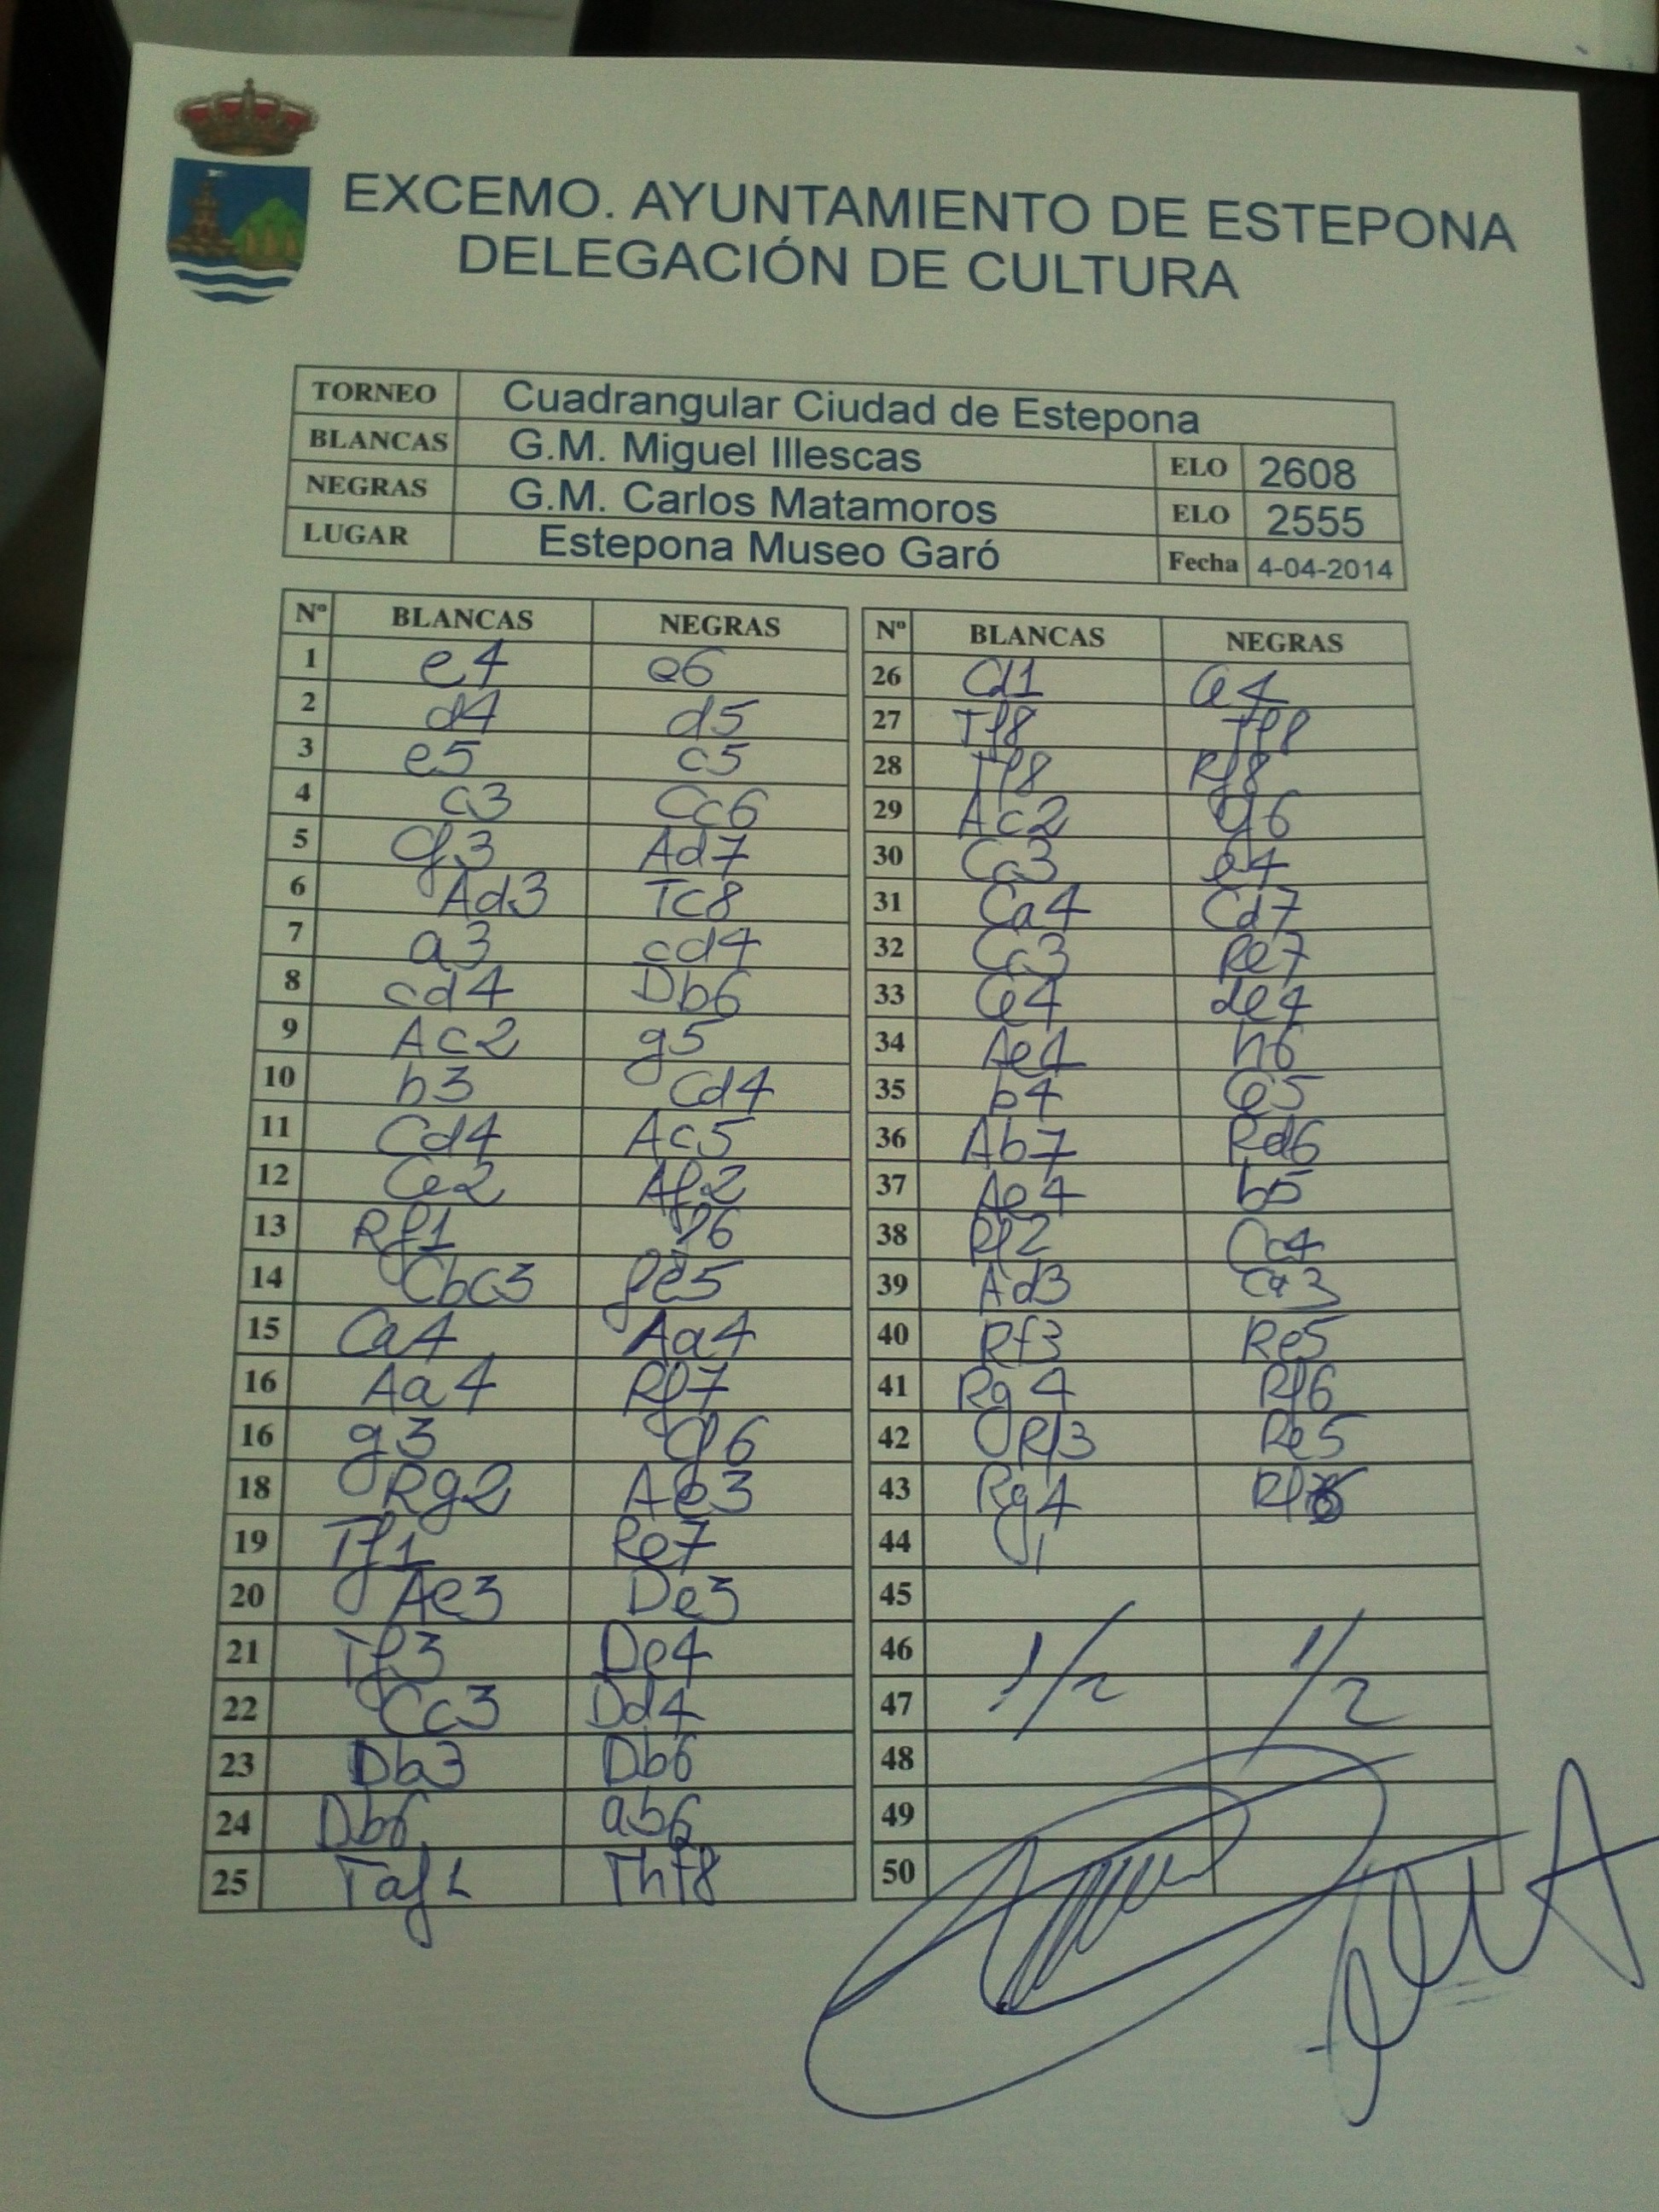 EXCEMO. AYUNTAMIENTO DE ESTEPONA
DELEGACIÓN DE CULTURA
TORNEO Cuadrangular Ciudad de Estepona
BLANCAS G.M. Miguel Illescas ELO 2608
NEGRAS G.M. Carlos Matamoros ELO 2555
LUGAR Estepona Museo Garó Fecha 4-04-2014
Nº BLANCAS NEGRAS
1 e4 e6
2 d4 d5
3 e5 c5
4 c3 Cc6
5 Cf3 Ad7
6 Ad3 Tc8
7 a3 cd4
8 cd4 Db6
9 Ac2 g5
10 h3 Cd4
11 Cd4 Ac5
12 Ce2 Af2
13 Rf1 f6
14 Cbc3 fe5
15 Ca4 Aa4
16 Aa4 Rf7
16 g3 Cf6
18 Rg2 Ae3
19 Tf1 Re7
20 Ae3 De3
21 Tf3 De4
22 Cc3 Dd4
23 Db3 Db6
24 Db6 ab6
25 Taf1 Thf8
Nº BLANCAS NEGRAS
26 Cd1 Ce4
27 Tf8 Tf8
28 Tf8 Rf8
29 Ac2 Cf6
30 Cc3 e4
31 Ca4 Cd7
32 Cc3 Re7
33 Ce4 de4
34 Ae4 h6
35 b4 Ce5
36 Ab7 Rd6
37 Ae4 b5
38 Rf2 Cc4
39 Ad3 Ca3
40 Rf3 Re5
41 Rg4 Rf6
42 Rf3 Re5
43 Rg4 Rf6
44
45
46
47
48
49
50
1/2 1/2